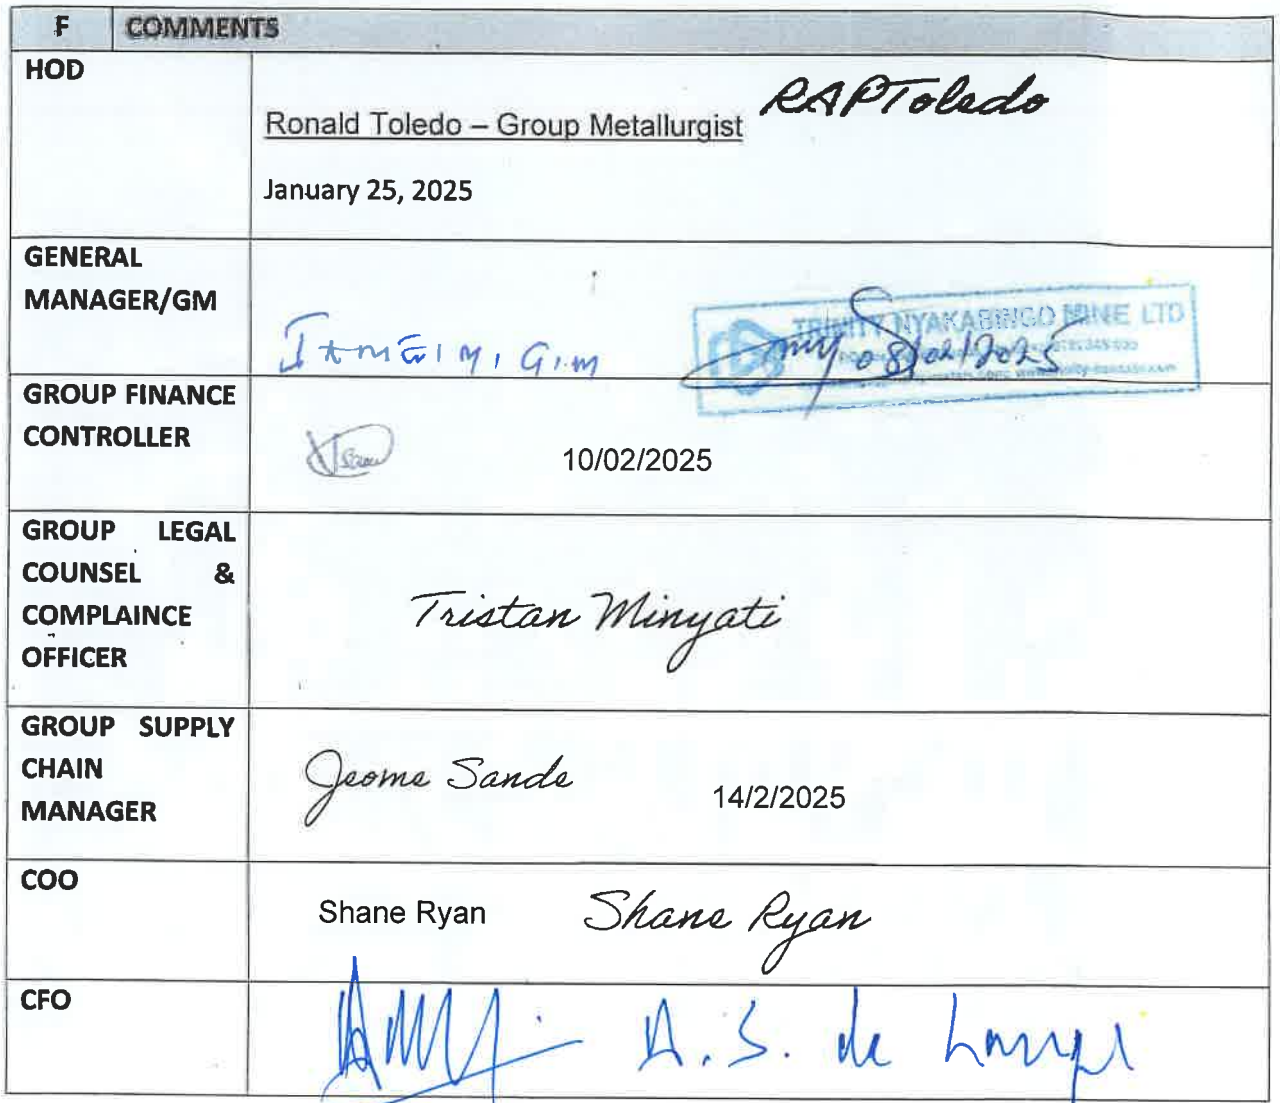 F COMMENTS
HOD
RAPToledo
Ronald Toledo – Group Metallurgist
January 25, 2025
GENERAL
MANAGER/GM
TRINITY NYAKABINGO MINE LTD
08/02/2025
GROUP FINANCE
CONTROLLER
10/02/2025
GROUP LEGAL
COUNSEL &
COMPLAINCE
OFFICER
Tristan Minyati
GROUP SUPPLY
CHAIN
MANAGER
Jeome Sande
14/2/2025
COO
Shane Ryan Shane Ryan
CFO
A. S. de